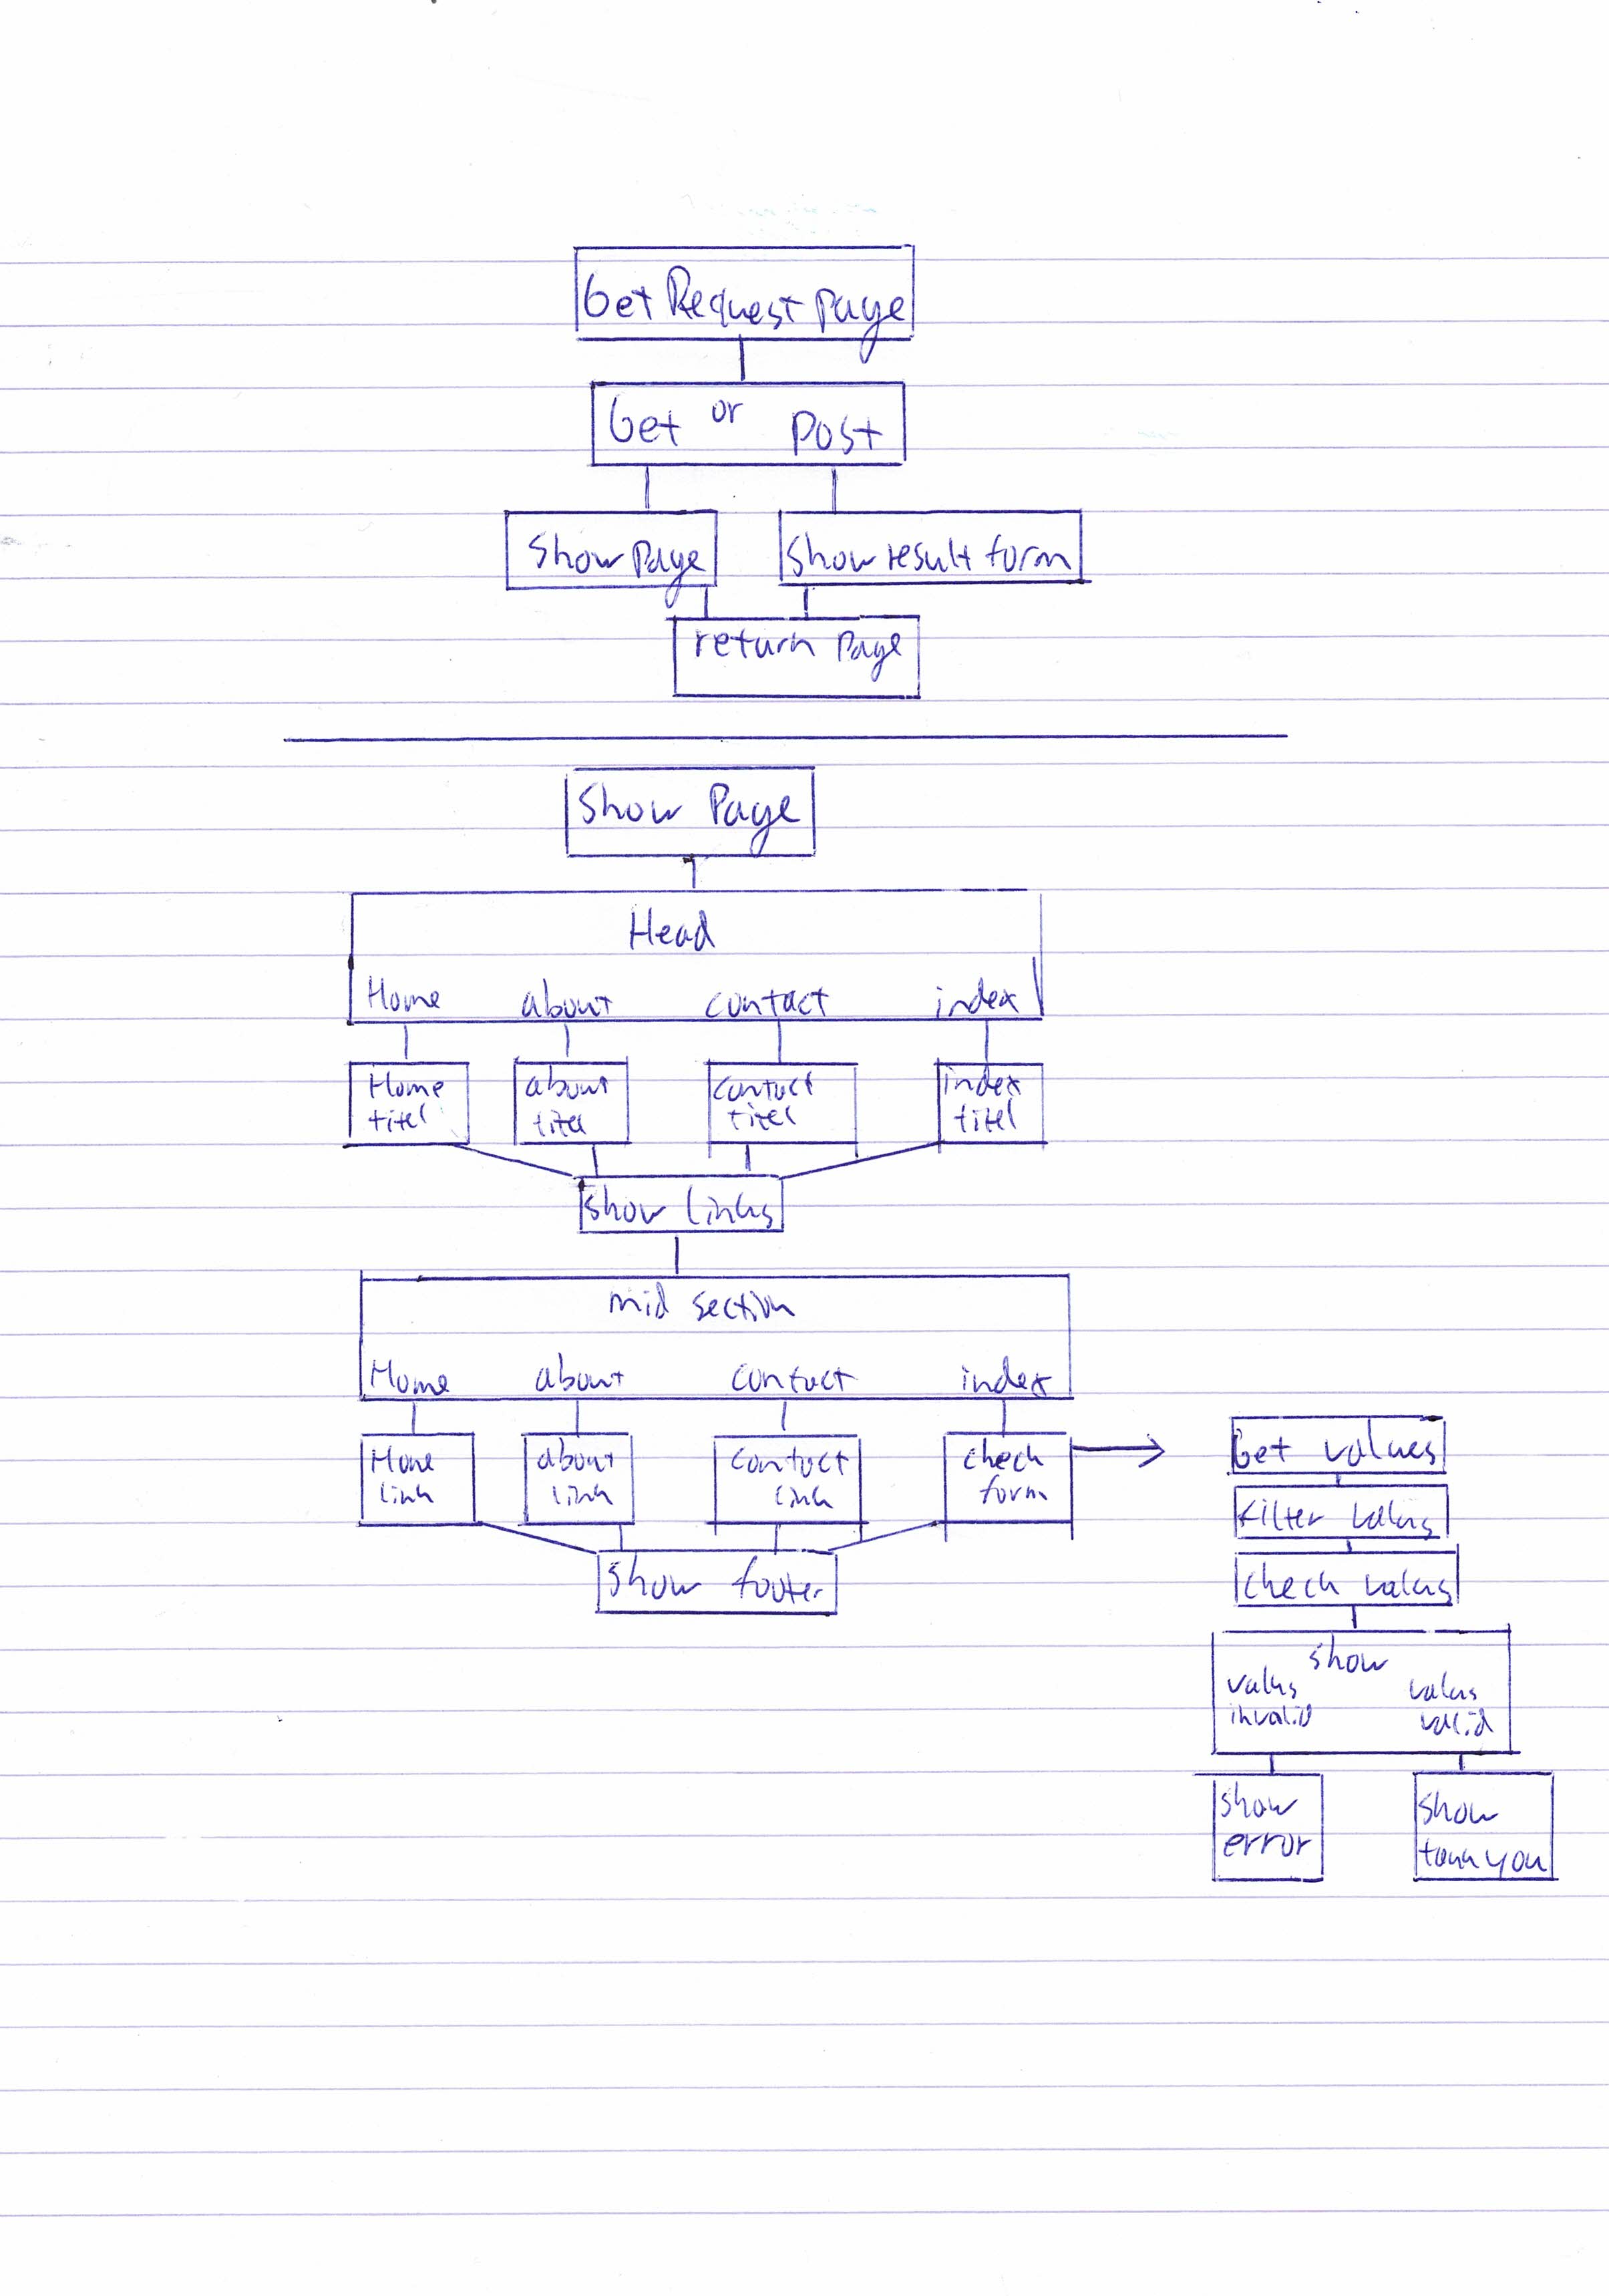 Get Request Page
Get or Post
Show Page
Show result form
return Page
Show Page
Head
Home about contact index
Home
titel
about
titel
contact
titel
index
titel
Show links
mid section
Home about contact index
Home
link
about
link
contact
link
check
form
Show footer
Get values
Filter values
check values
show
values
invalid
values
valid
show
error
show
tank you